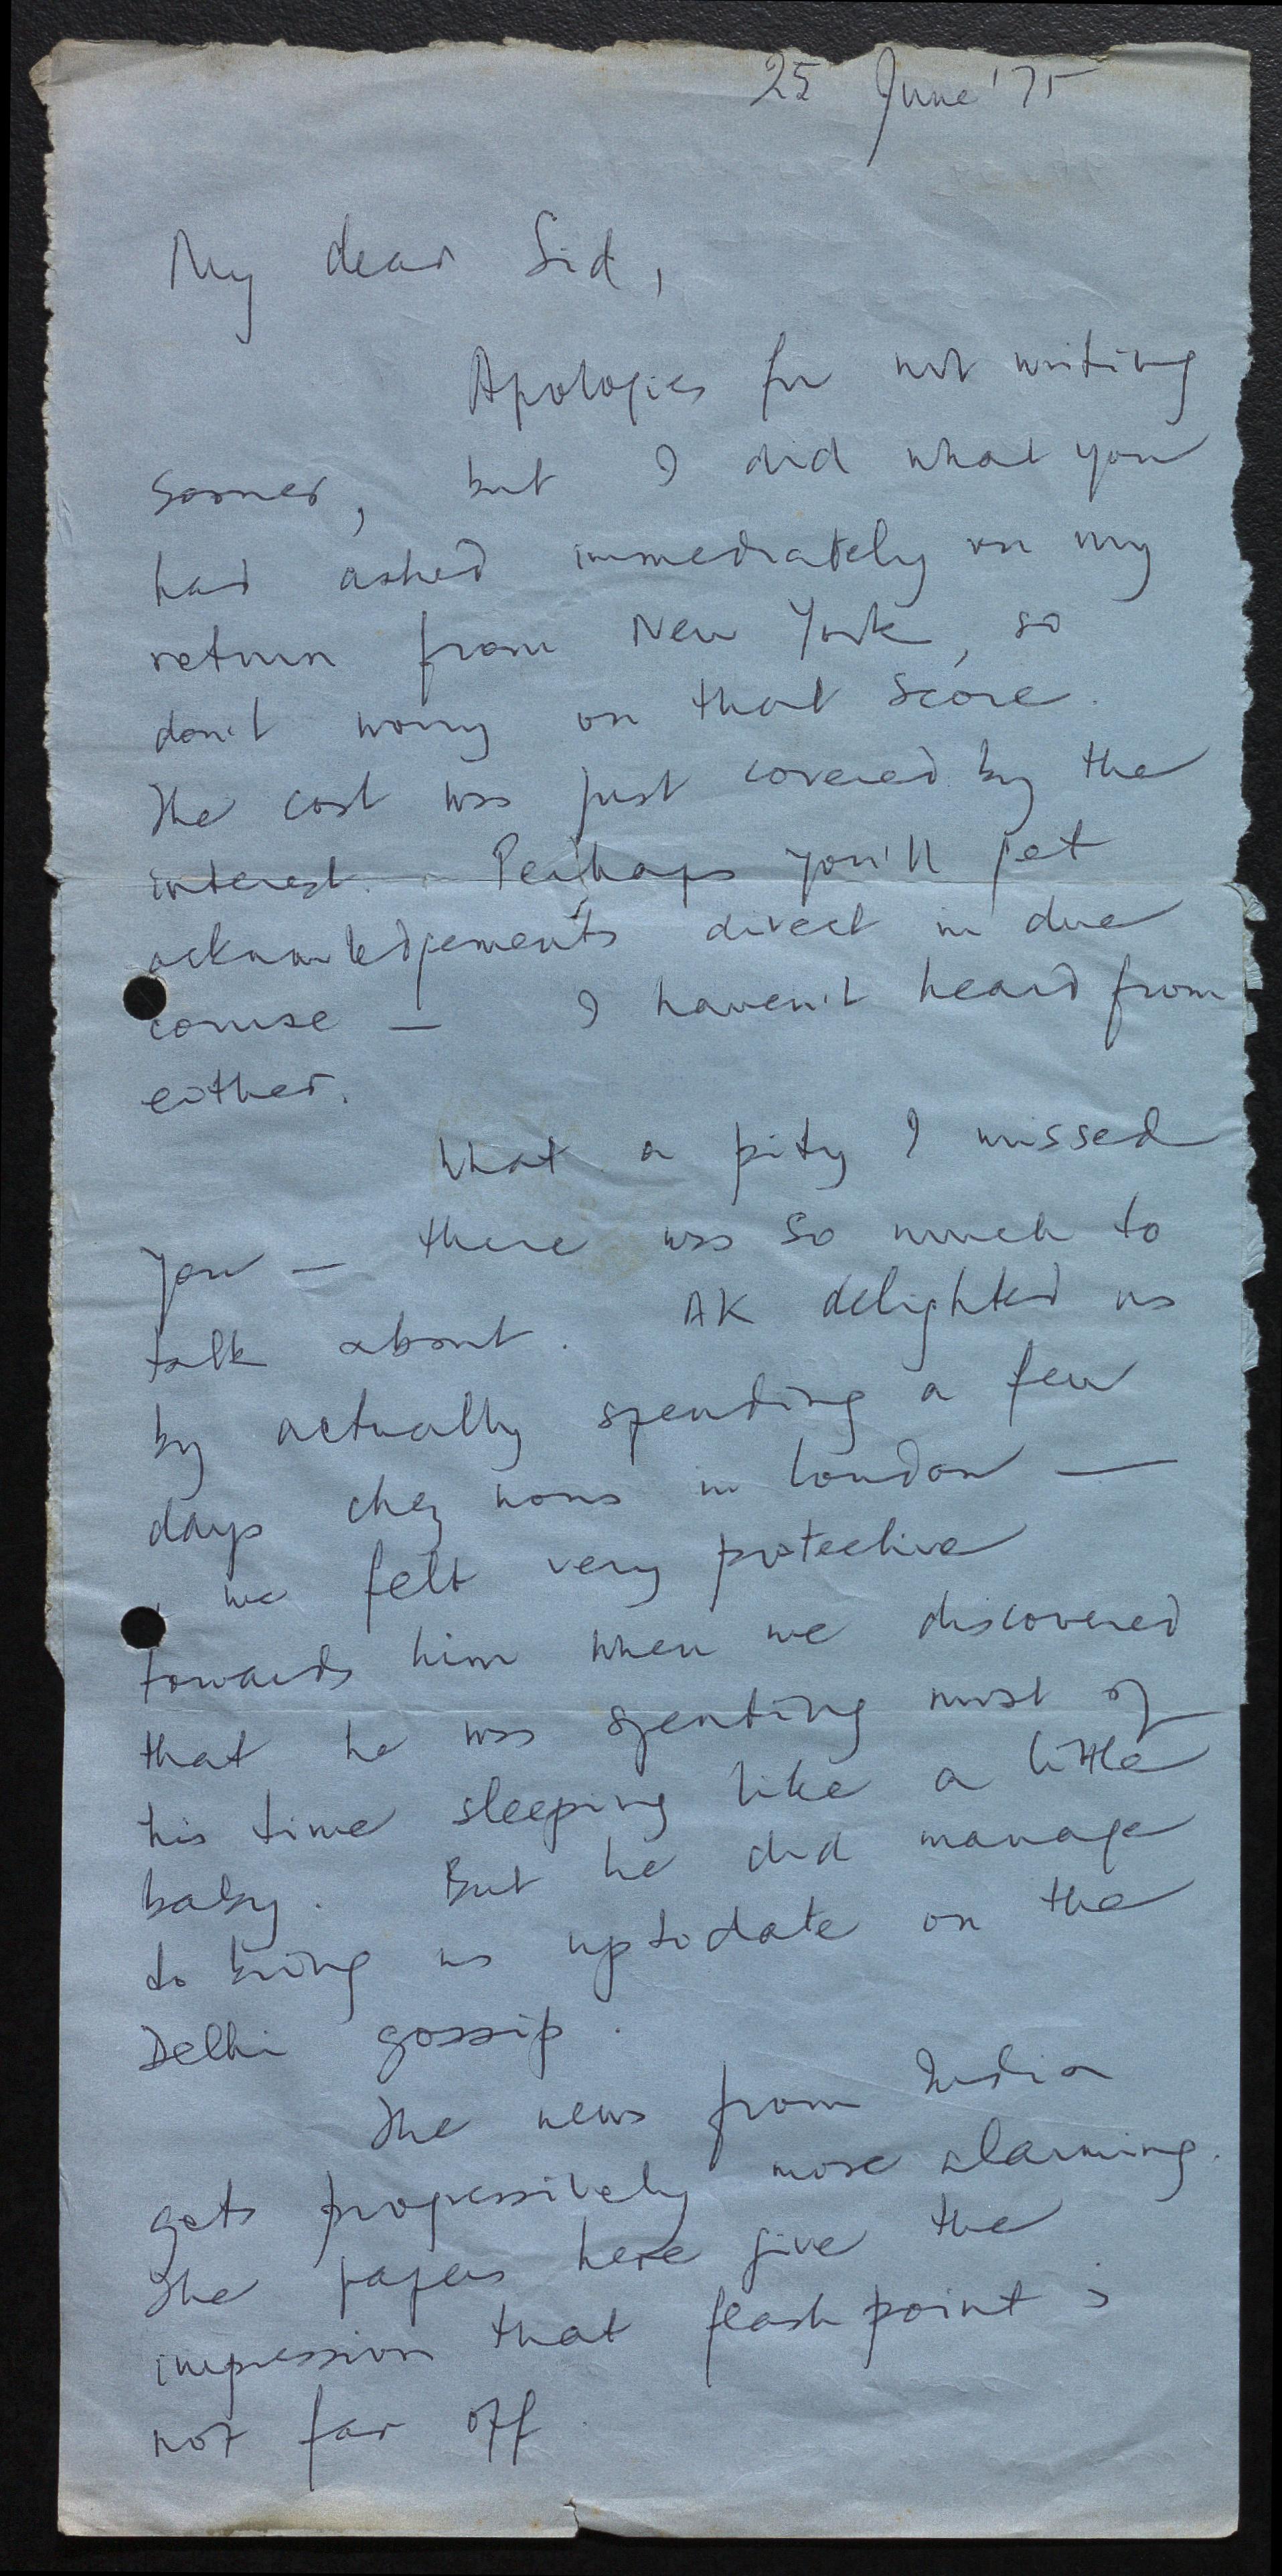 25 June '75
My dear Sid,
Apologies for not writing
sooner, but I did what you
had asked immediately on my
return from New York, so
don't worry on that score.
The cost was just covered by the
interest. Perhaps you'll get
acknowledgements direct in due
course — I haven't heard from
either.
What a pity I missed
you — there was so much to
talk about. AK delighted us
by actually spending a few
days chez nous in London —
we felt very protective
towards him when we discovered
that he was spending most of
his time sleeping like a little
baby. But he did manage
to bring us uptodate on the
Delhi gossip.
The news from India
gets progressively more alarming.
The papers here give the
impression that flash point is
not far off.